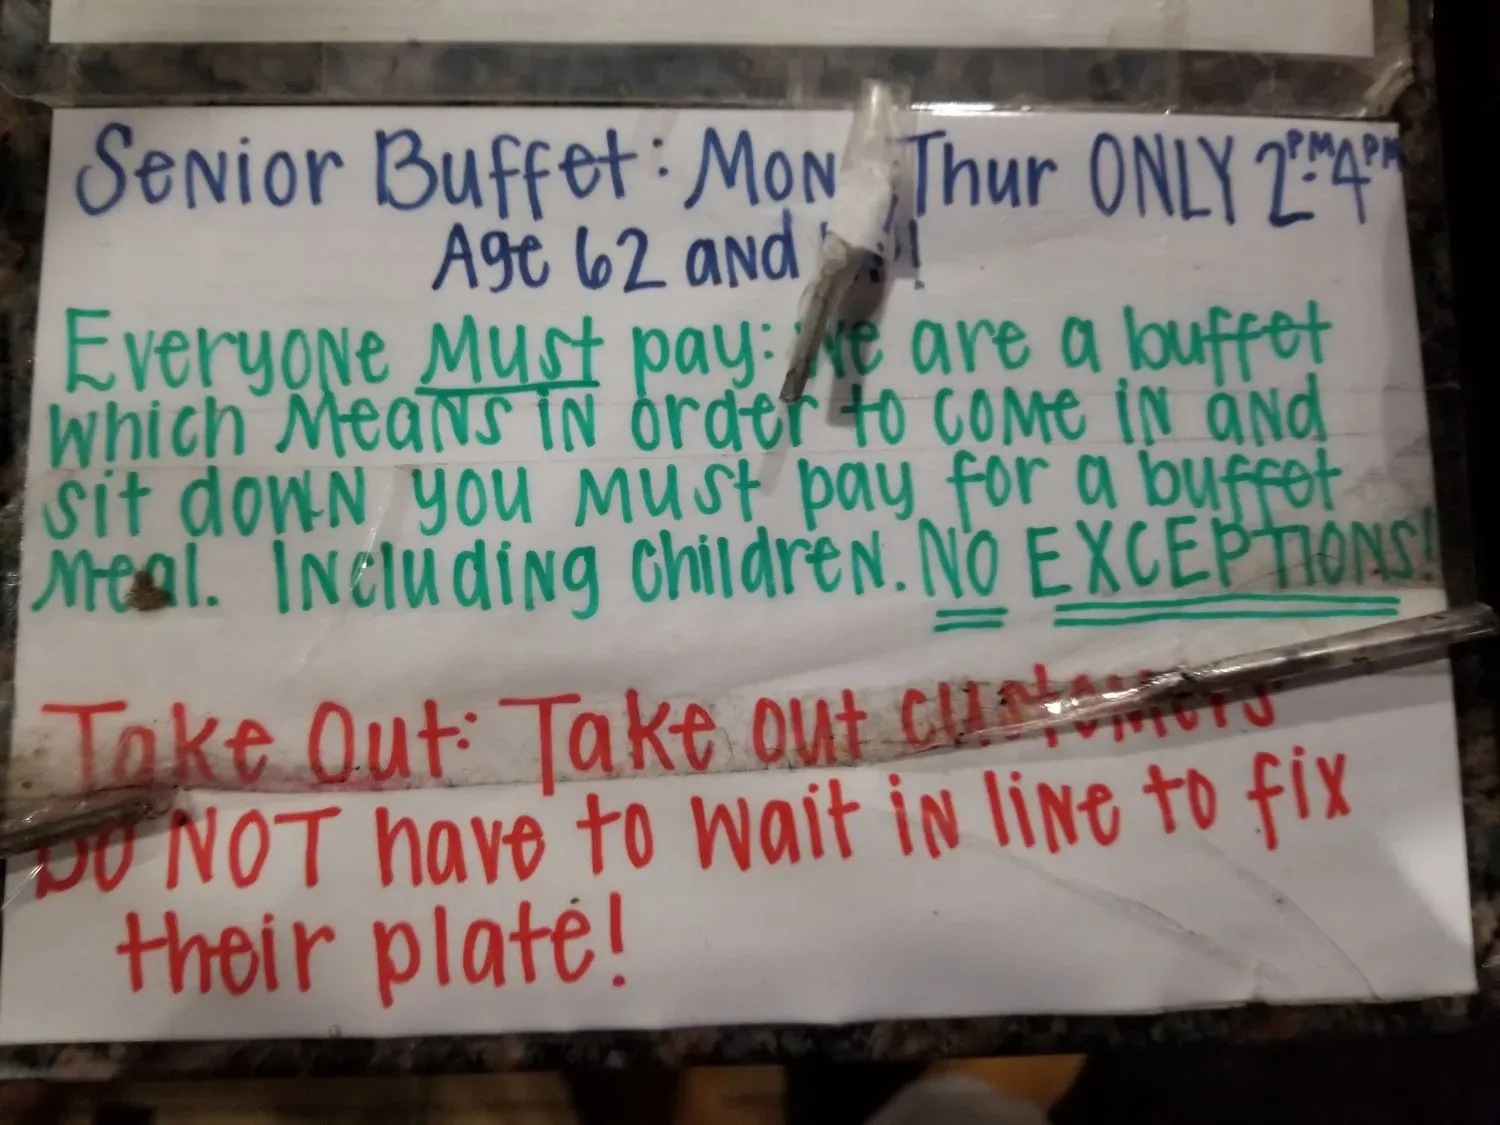 Senior Buffet: Mon Thur ONLY 2PM-4PM
Age 62 and
Everyone Must pay: We are a buffet
which Means in order to come in and
sit down you must pay for a buffet
meal. Including children. NO EXCEPTIONS!
Take Out: Take out customers
DO NOT have to wait in line to fix
their plate!